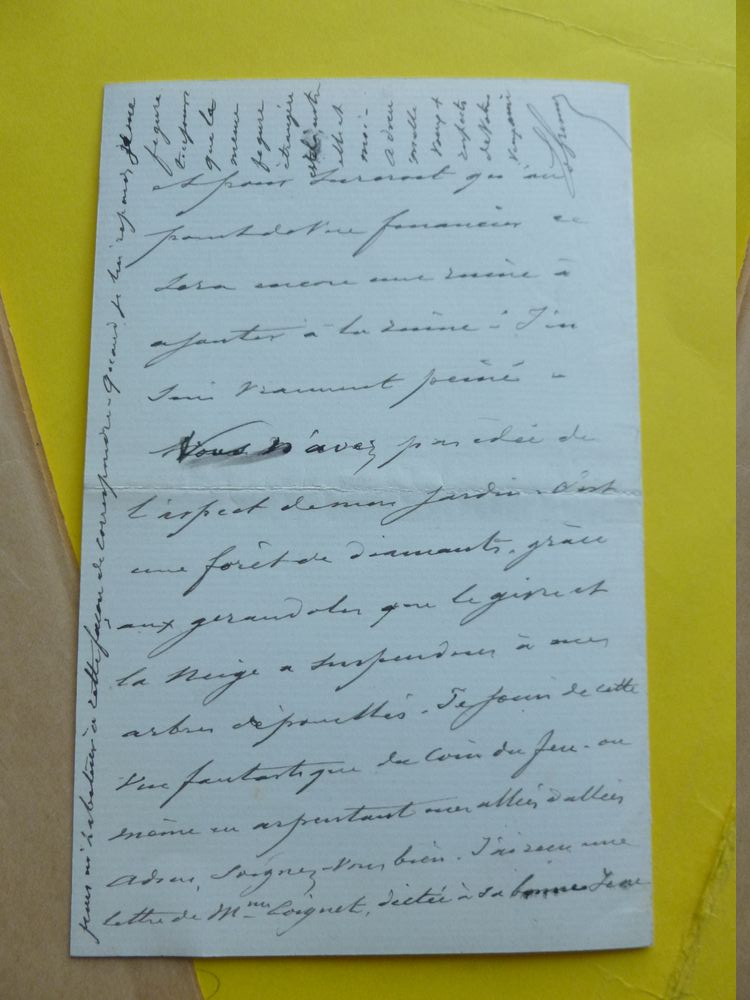 et pour surcroit qu'au
point de vue financier ce
sera encore une ruine à
ajouter à la ruine ! J'en
suis vraiment peiné -
Vous n'avez pas idée de
l'aspect de mon jardin - C'est
une forêt de diamants, grâce
aux girandoles que le givre et
la neige a suspendues à mes
arbres dépouillés - Je jouis de cette
vue fantastique du coin du feu - ou
même en arpentant mes allées
Adieu, soignez-vous bien. J'ai reçu une
lettre de Mme Coignet, dictée à sa bonne Je ne
peux m'habituer à cette façon de correspondre - Quand je lui réponds je me
figure
toujours
que la
même
figure
étrangère
est entre
elle et
moi -
Adieu
mille
vœux &
respects
de votre